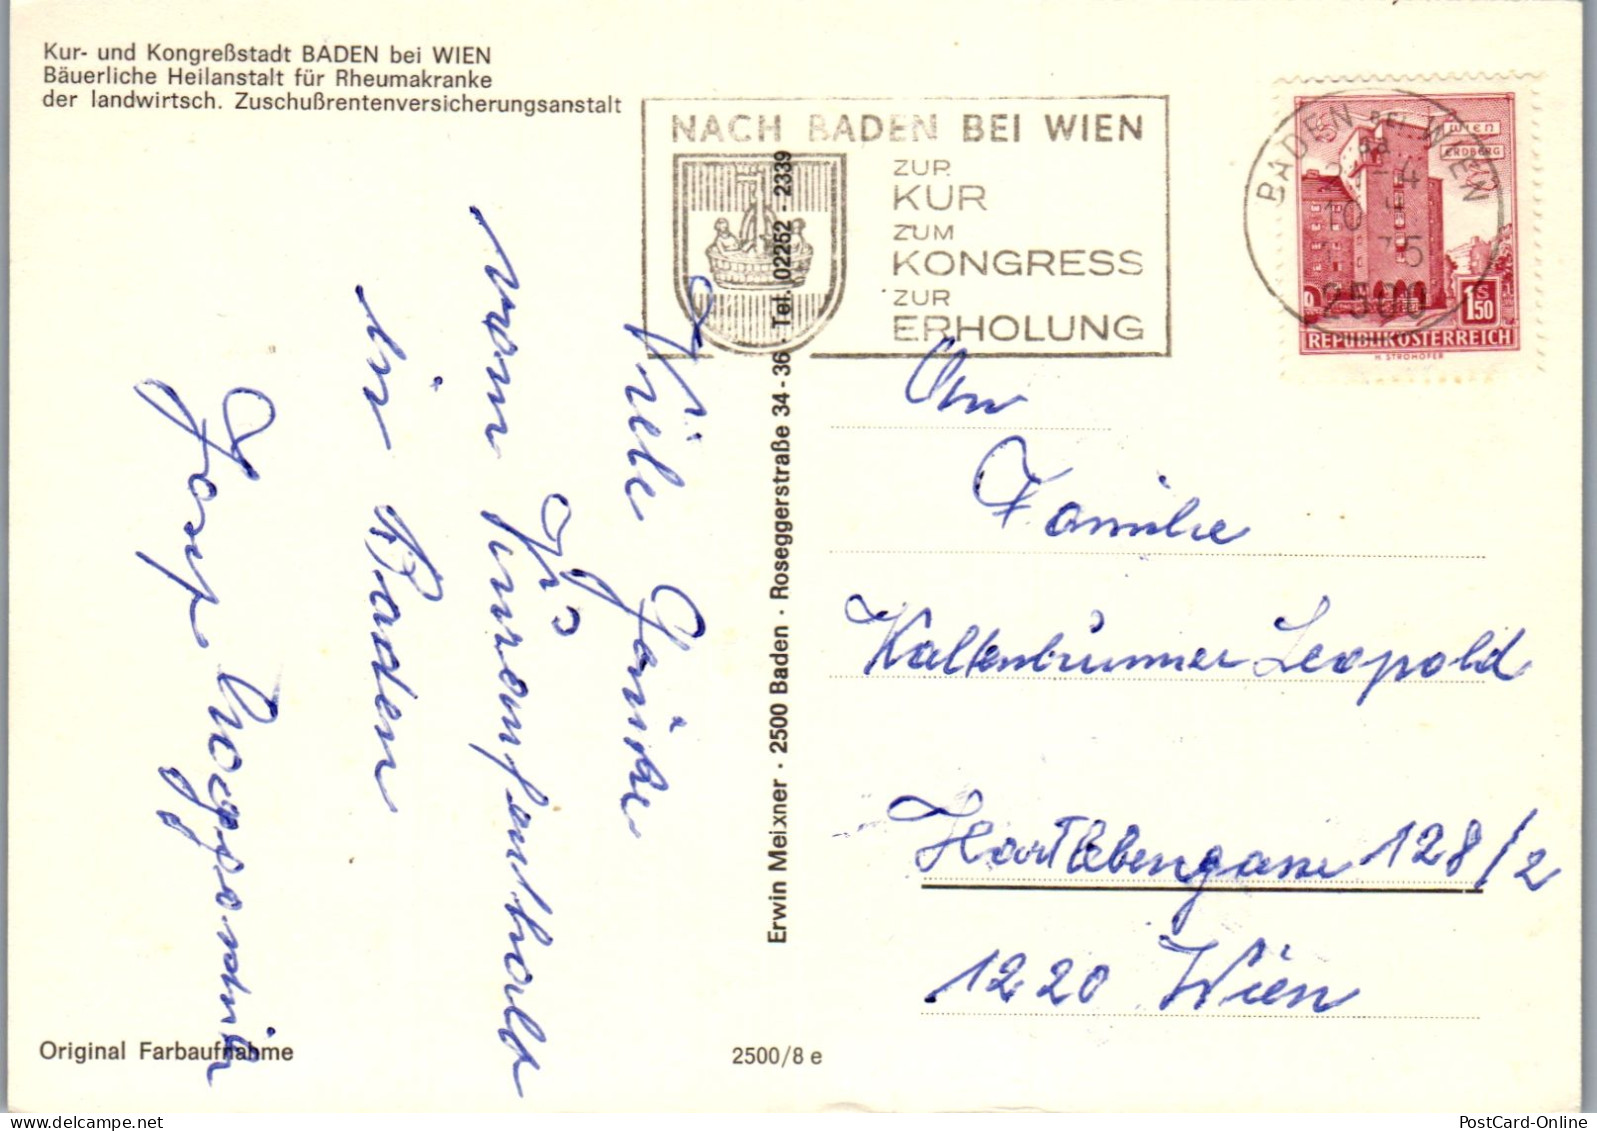 Kur- und Kongreßstadt BADEN bei WIEN
Bäuerliche Heilanstalt für Rheumakranke
der landwirtsch. Zuschußrentenversicherungsanstalt
NACH BADEN BEI WIEN
ZUR
KUR
ZUM
KONGRESS
ZUR
ERHOLUNG
BADEN BEI WIEN
2500
WIEN
ERDBERG
1S50
REPUBLIK ÖSTERREICH
H. STROHOFER
Viele Grüße
vom Kuraufenthalt
in Baden
Josef
Erwin Meixner · 2500 Baden · Roseggerstraße 34-36 · Tel. 02252 - 2339
An
Familie
Kaltenbrunner Leopold
Hartlebengasse 128/2
1220 Wien
Original Farbaufnahme
2500/8 e
PostCard-Online